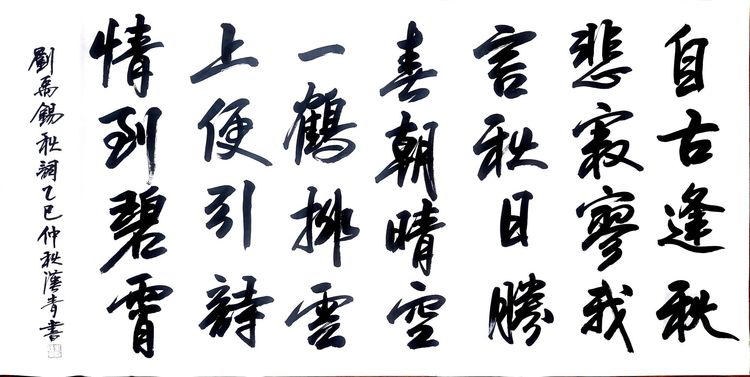 自古逢秋
悲寂寥我
言秋日勝
春朝晴空
一鶴排雲
上便引詩
情到碧霄
劉禹錫秋詞乙巳仲秋漢青書